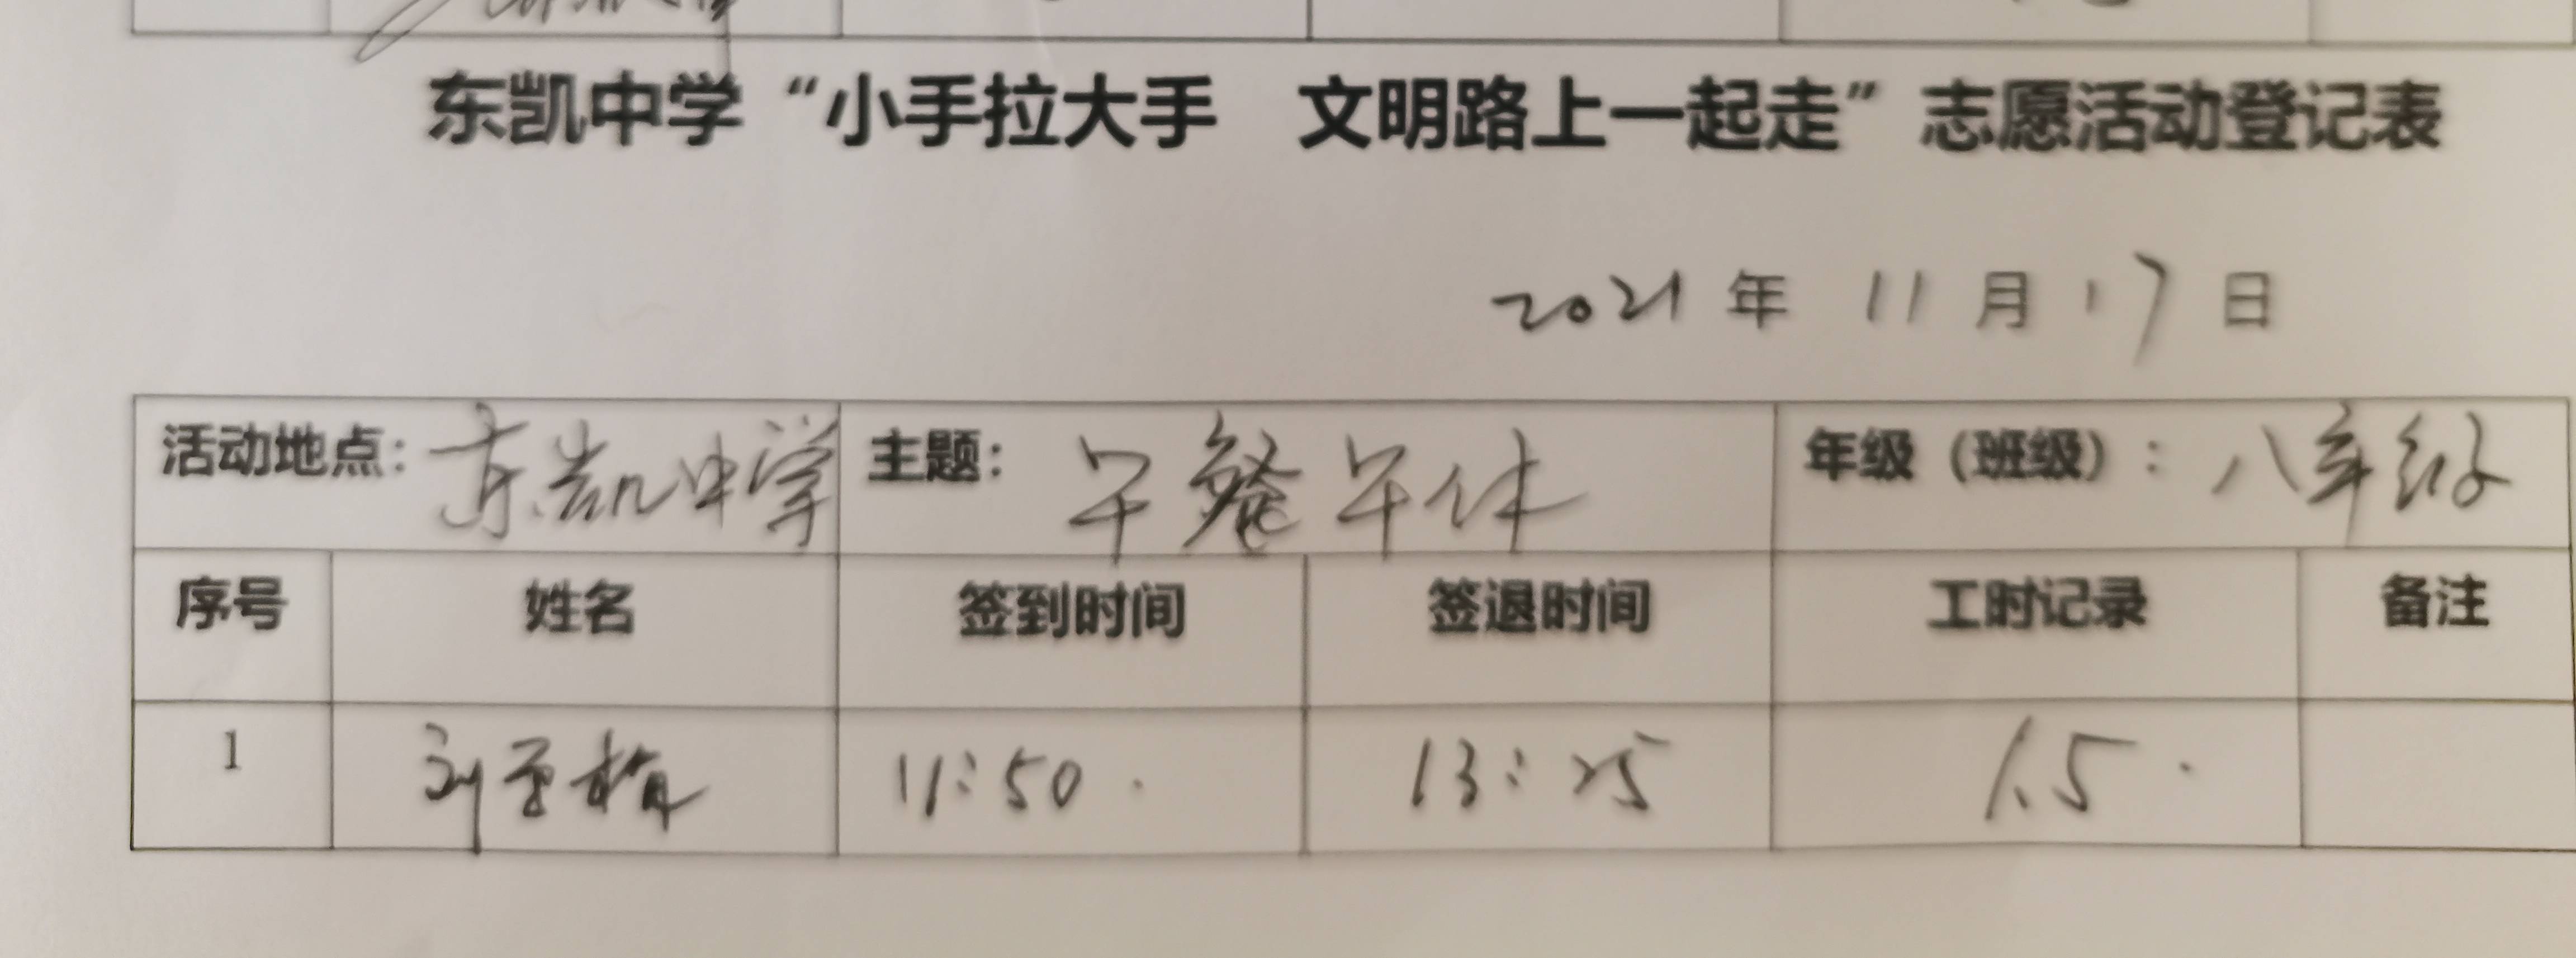 东凯中学“小手拉大手 文明路上一起走”志愿活动登记表
2021 年 11 月 17 日
活动地点：东凯中学 主题：午餐午休 年级（班级）：八年级
序号 姓名 签到时间 签退时间 工时记录 备注
1 刘 11:50 13:25 1.5